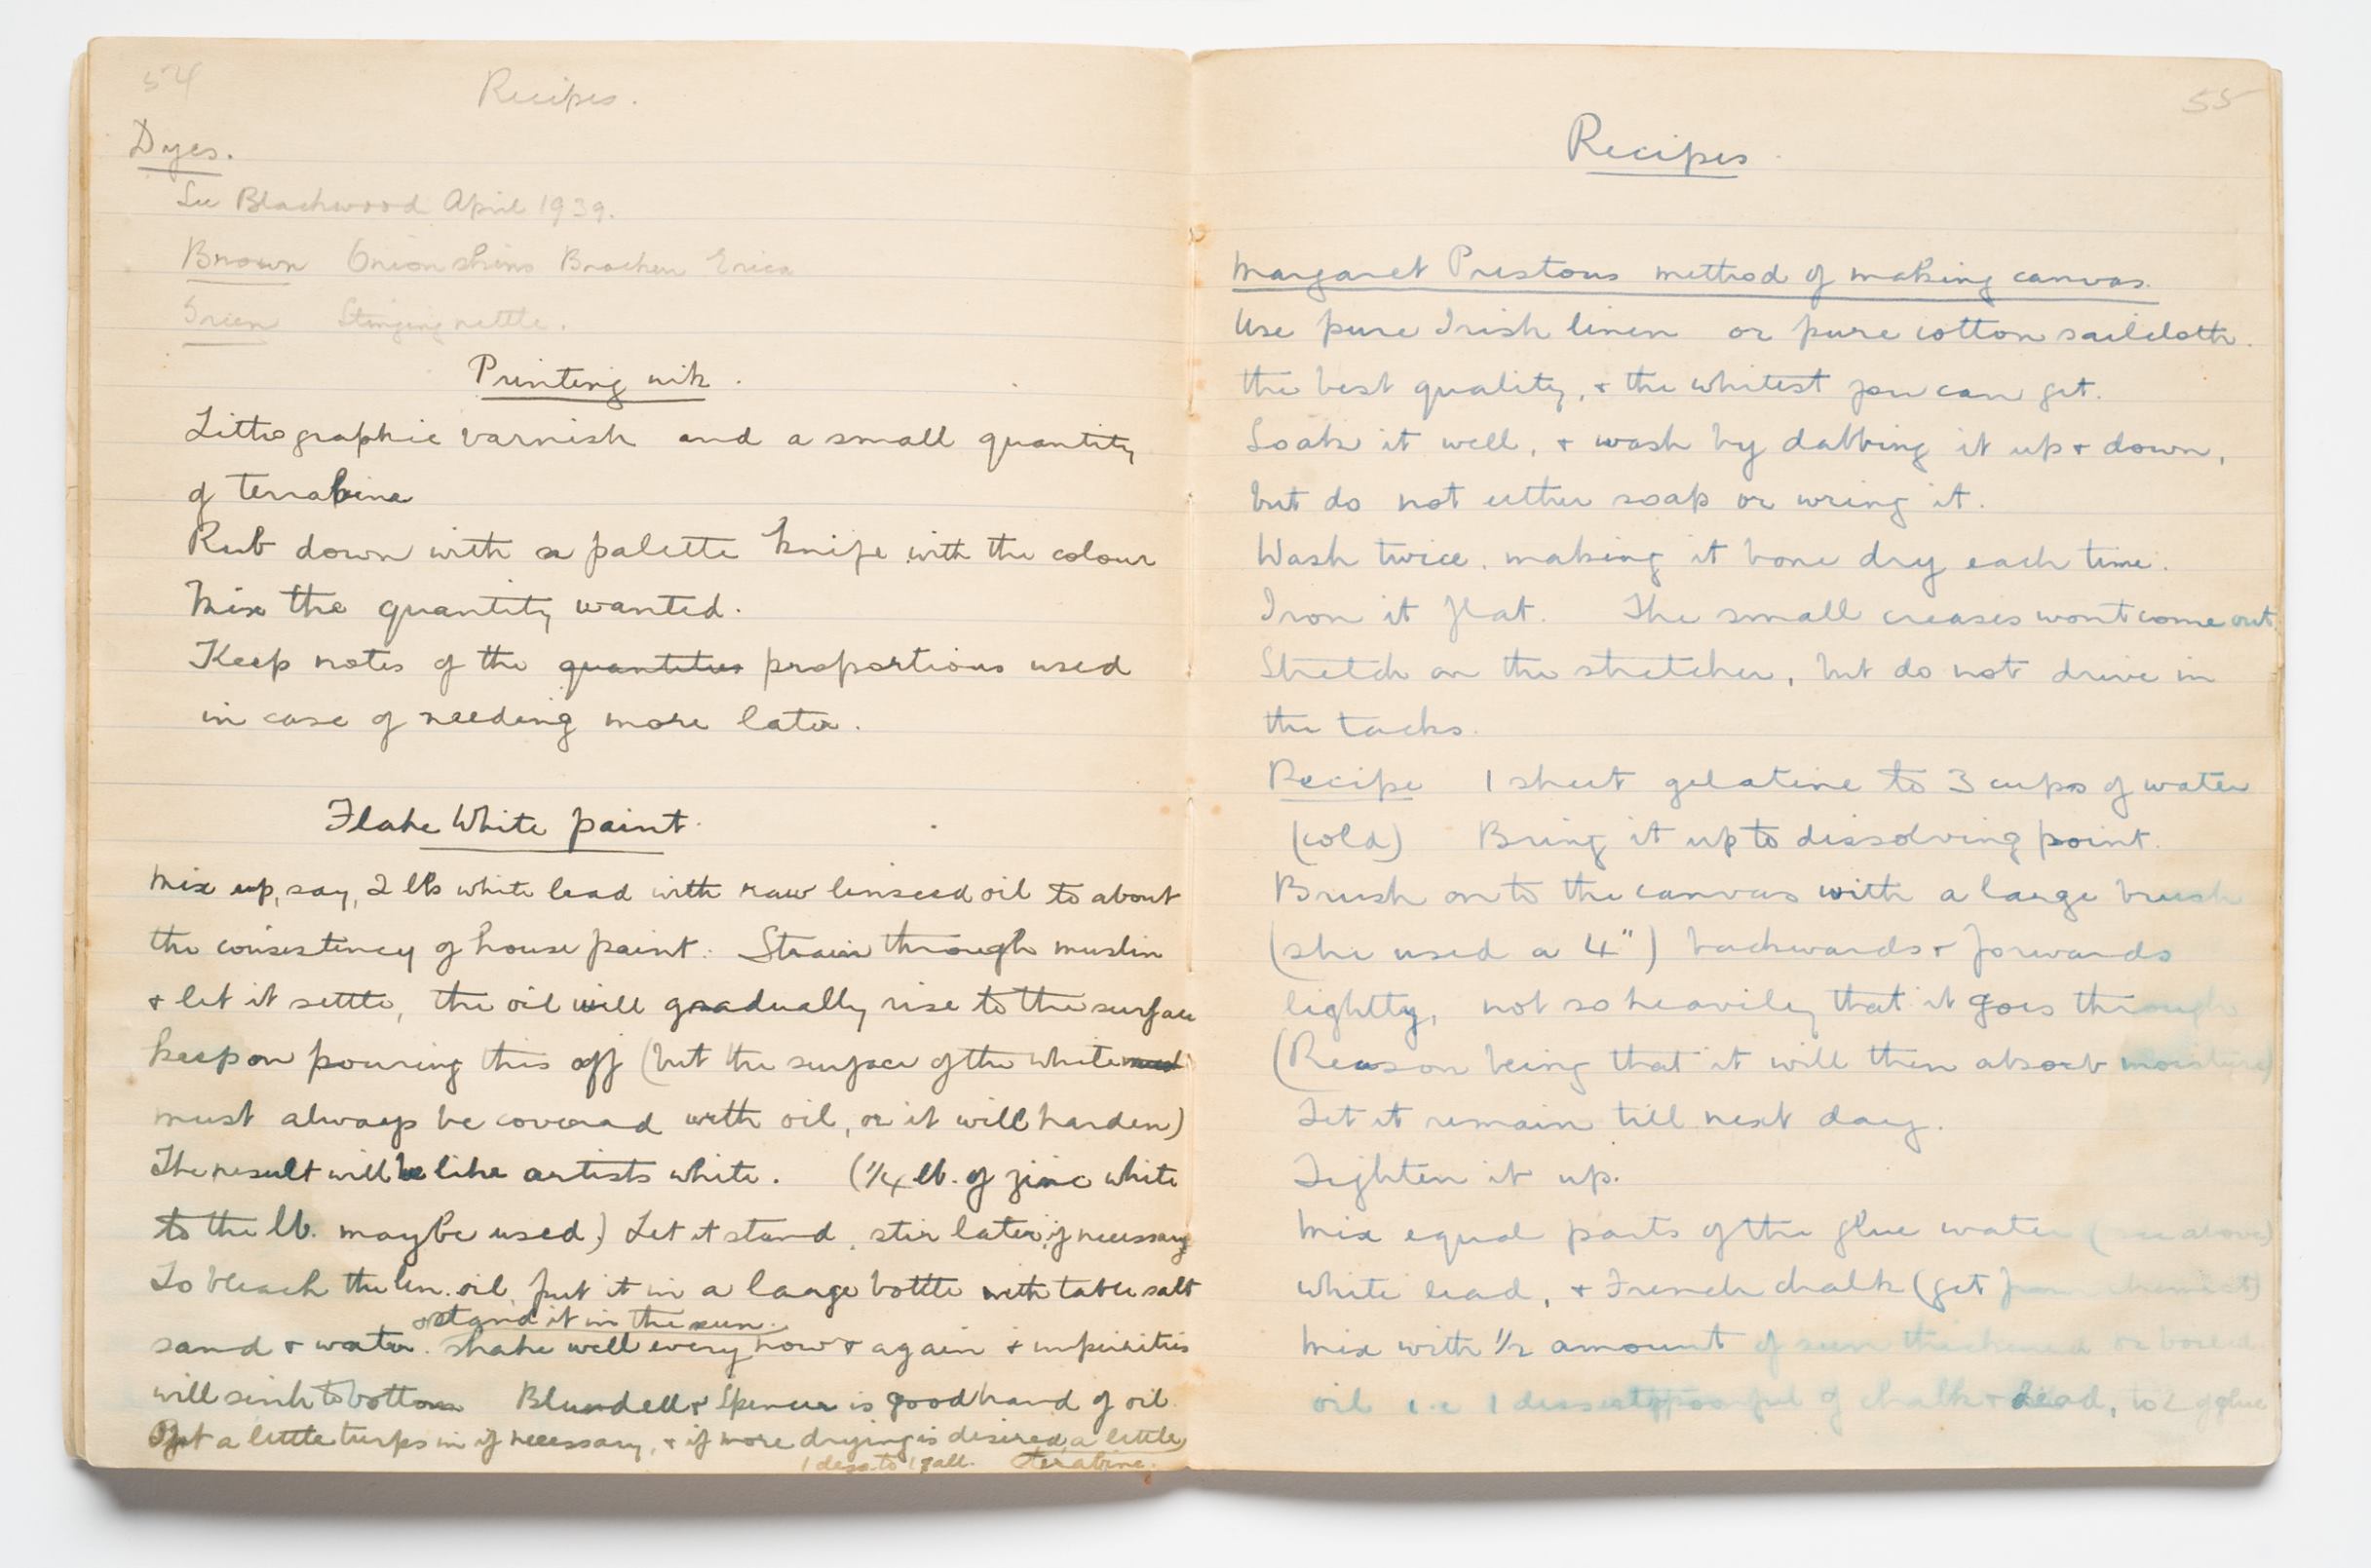 54
Recipes.
Dyes.
See Blackwood April 1939.
Brown Onion skins Bracken Erica
Green Stinging nettle.
Printing ink.
Lithographic varnish and a small quantity
of terrabine
Rub down with a palette knife with the colour
Mix the quantity wanted.
Keep notes of the quantities proportions used
in case of needing more later.
Flake White paint.
Mix up, say, 2 lbs white lead with raw linseed oil to about
the consistency of house paint. Strain through muslin
+ let it settle, the oil will gradually rise to the surface
keep on pouring this off (but the surface of the white must
must always be covered with oil, or it will harden)
The result will be like artists white. (1/4 lb. of zinc white
to the lb. may be used) Let it stand, stir later if necessary
To bleach the lin. oil, put it in a large bottle with table salt
+ stand it in the sun.
sand + water. Shake well every now + again + impurities
will sink to bottom Blundell + Spencer is good brand of oil.
Put a little turps in if necessary, + if more drying is desired, a little
1 dess. to 1 gall. terabine.
55
Recipes.
Margaret Prestons method of making canvas.
Use pure Irish linen or pure cotton sailcloth.
the best quality, + the whitest you can get.
Soak it well, + wash by dabbing it up + down,
but do not either soap or wring it.
Wash twice, making it bone dry each time.
Iron it flat. The small creases wont come out.
Stretch on the stretcher, but do not drive in
the tacks.
Recipe 1 sheet gelatine to 3 cups of water
(cold) Bring it up to dissolving point.
Brush on to the canvas with a large brush
(she used a 4") backwards + forwards
lightly, not so heavily that it goes through
(Reason being that it will then absorb moisture)
Let it remain till next day.
Tighten it up.
Mix equal parts of the glue water (see above)
white lead, + French chalk (get from chemist)
Mix with 1/2 amount of sun thickened or boiled
oil i.e 1 dessertspoonful of chalk + lead, to 2 glue